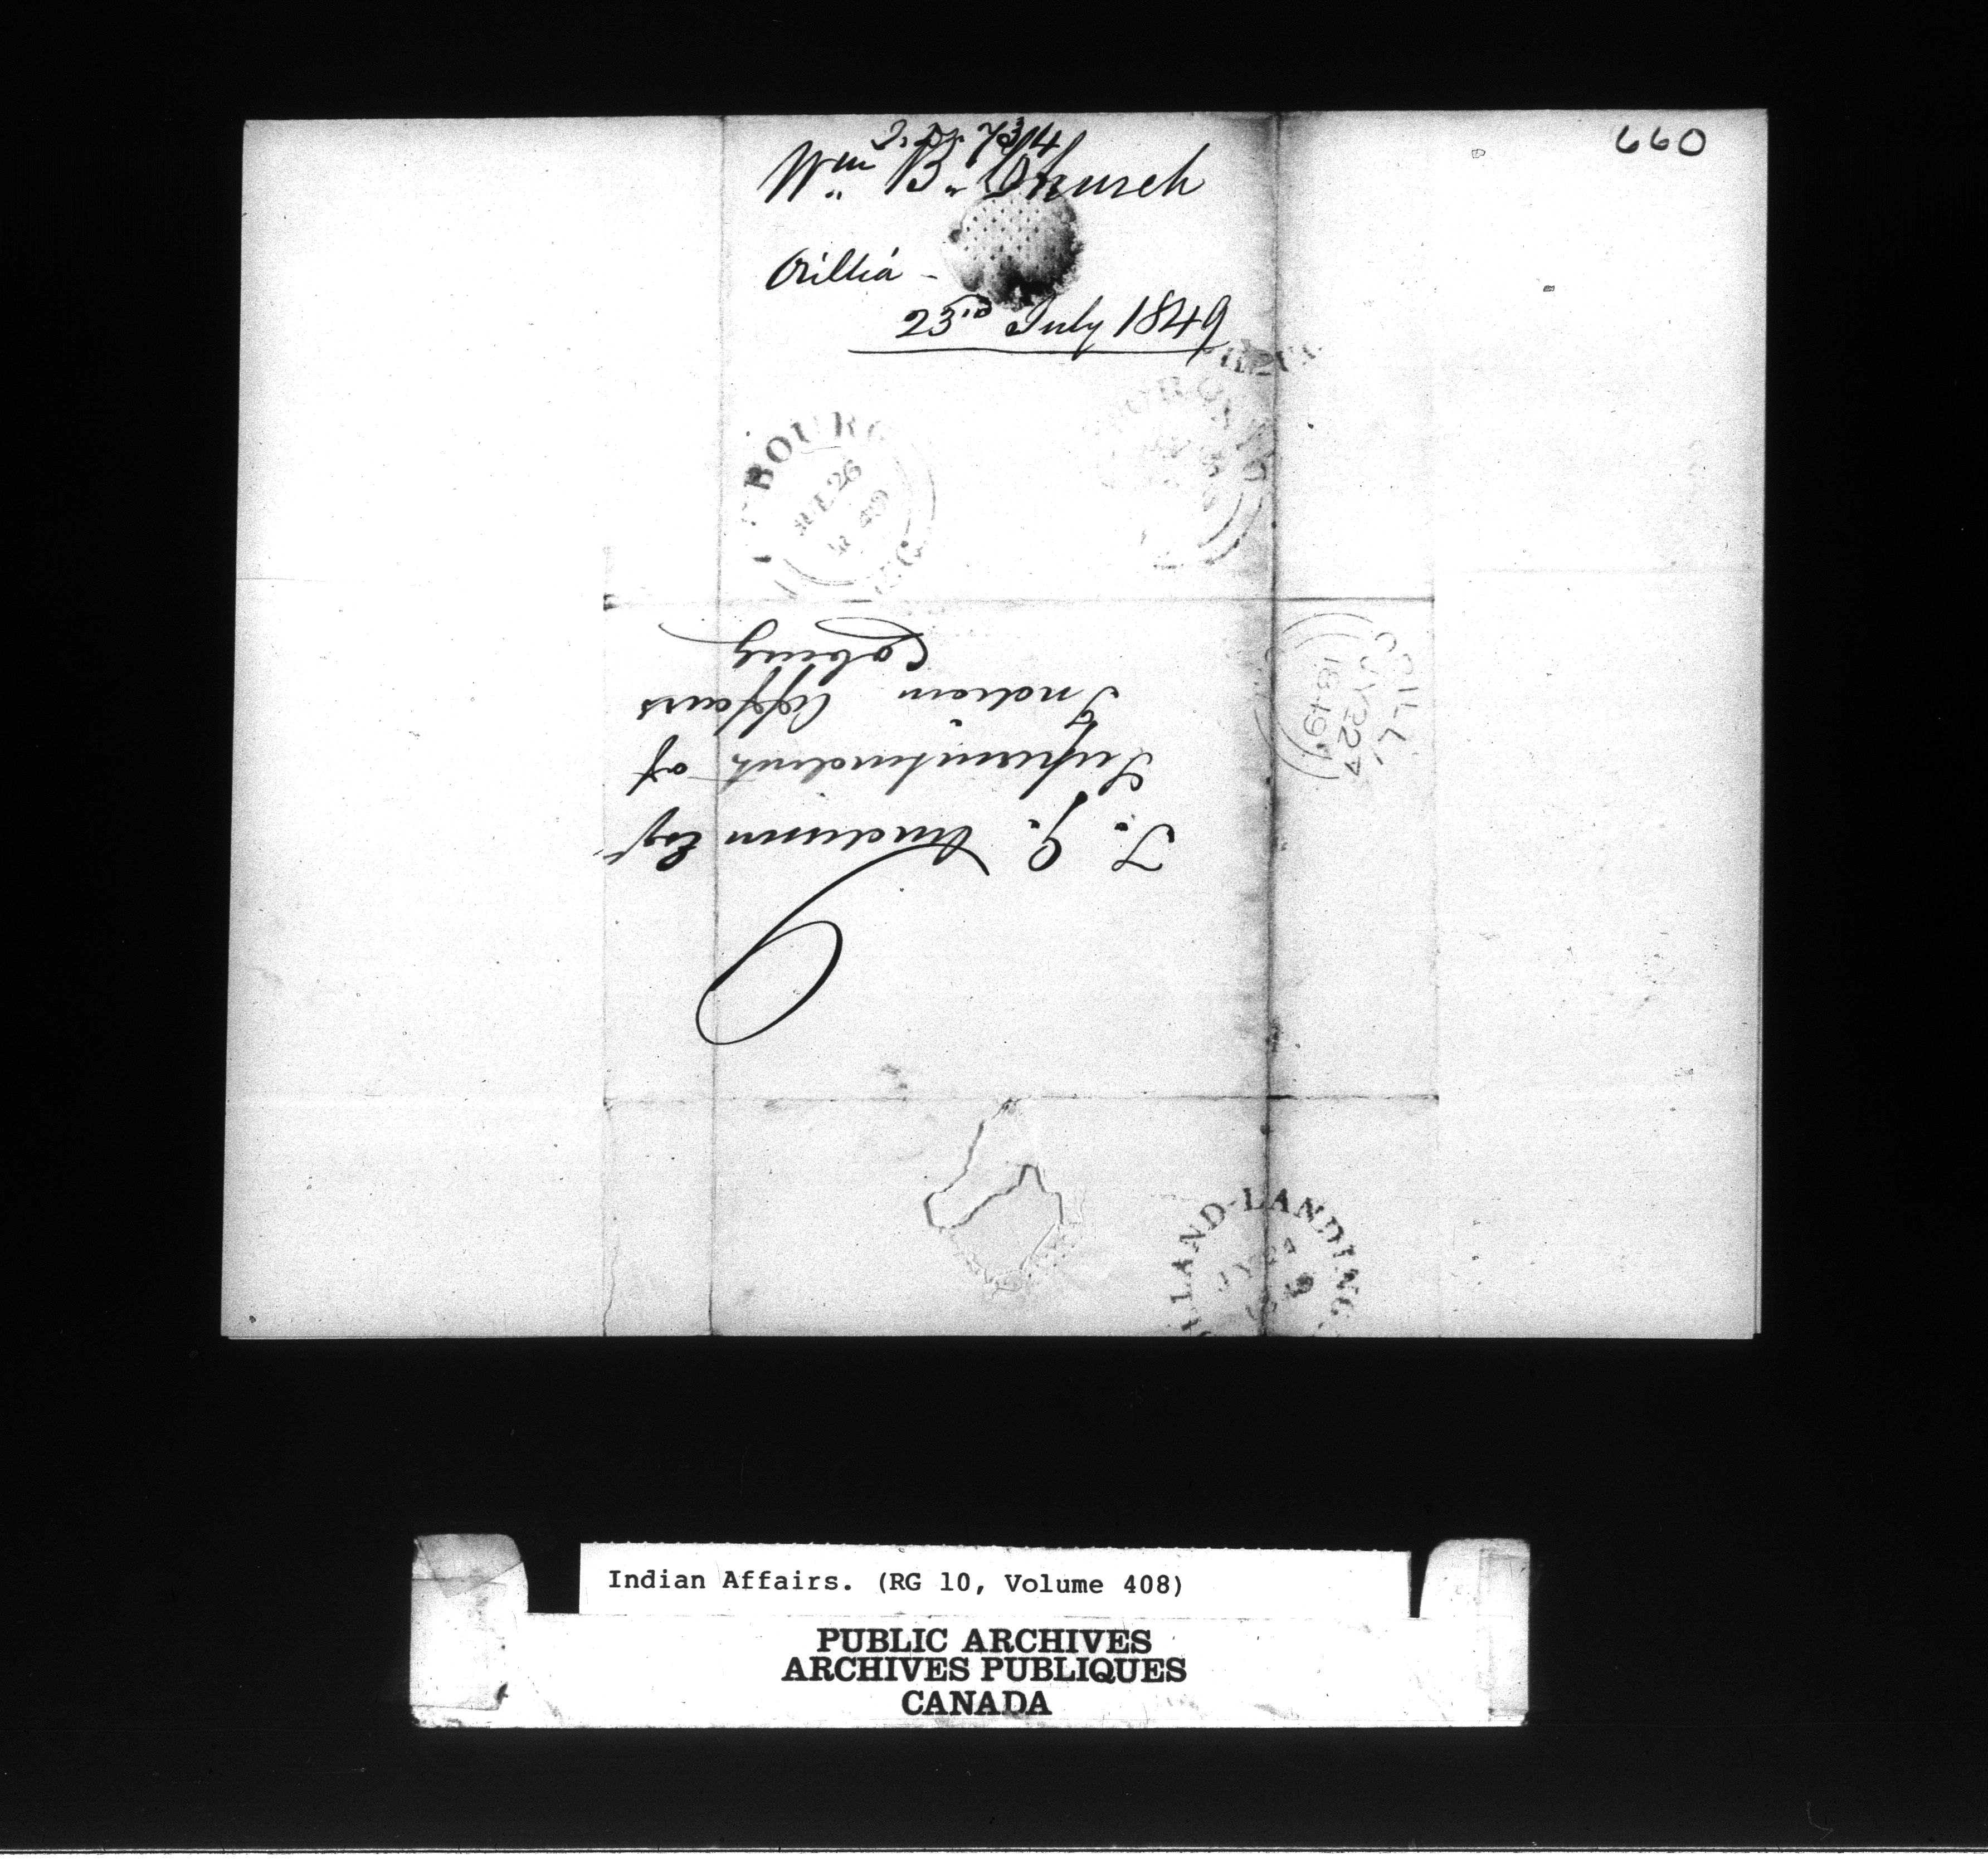 660
Wm B. Church
Orillia -
23rd July 1849
BOURG
JUL 26
49
ORILLIA
JY 22
1849
T. G. Anderson Esqr
Superintendent of
Indian Affairs
Cobourg
LLAND-LANDING
Indian Affairs. (RG 10, Volume 408)
PUBLIC ARCHIVES
ARCHIVES PUBLIQUES
CANADA